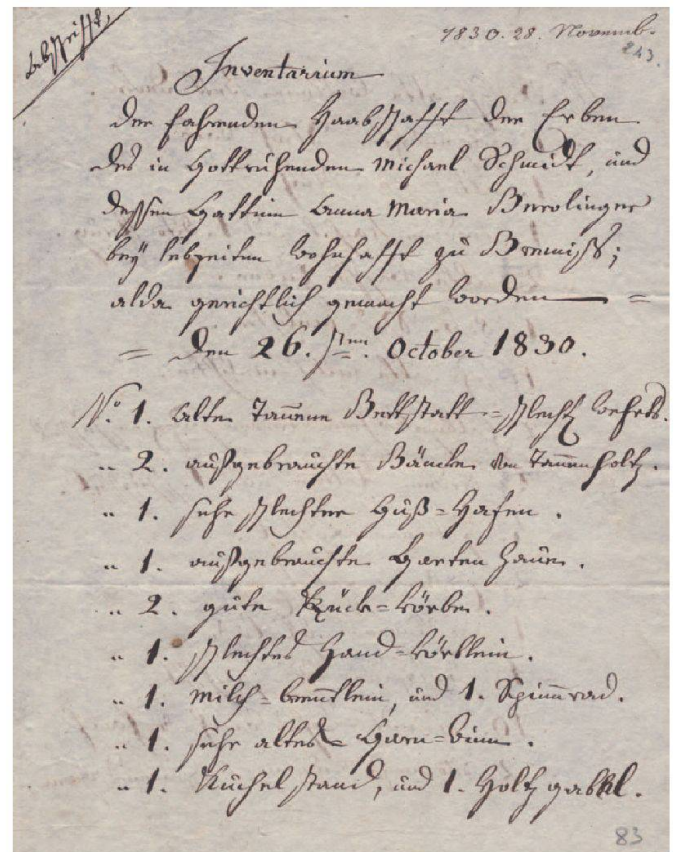 Abschrifft,
1830. 28. Novemb.
243.
Inventarium
der fahrenden Haabschafft der Erben
des in Gottruhenden Michael Schmidt, und
dessen Gattin Anna Maria
bey lebzeiten wohnhafft zu
alda gerichtlich gemacht worden =
= Den 26.sten October 1830.
No. 1. alte Tannene Bettstatt = schlecht
" 2. außgebrauchte Bäncke von Tannenholtz.
" 1. sehr schlechter Guß=Hafen.
" 1. außgebrauchte Garten Haue.
" 2. gute Rück=körbe.
" 1. schlechtes Hand=körblein.
" 1. Milch=brenntlein, und 1. Spinnrad.
" 1. sehr altes Garn=
" 1. Kuchel stand, und 1. Holtz gabel.
83